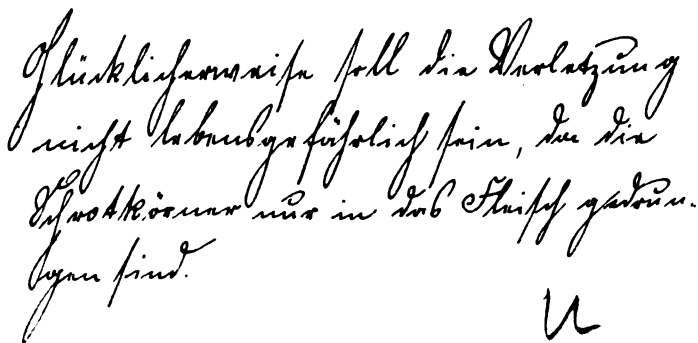 Glücklicherweise soll die Verletzung
nicht lebensgefährlich sein, da die
Schrotkörner nur in das Fleisch gedrun-
gen sind.